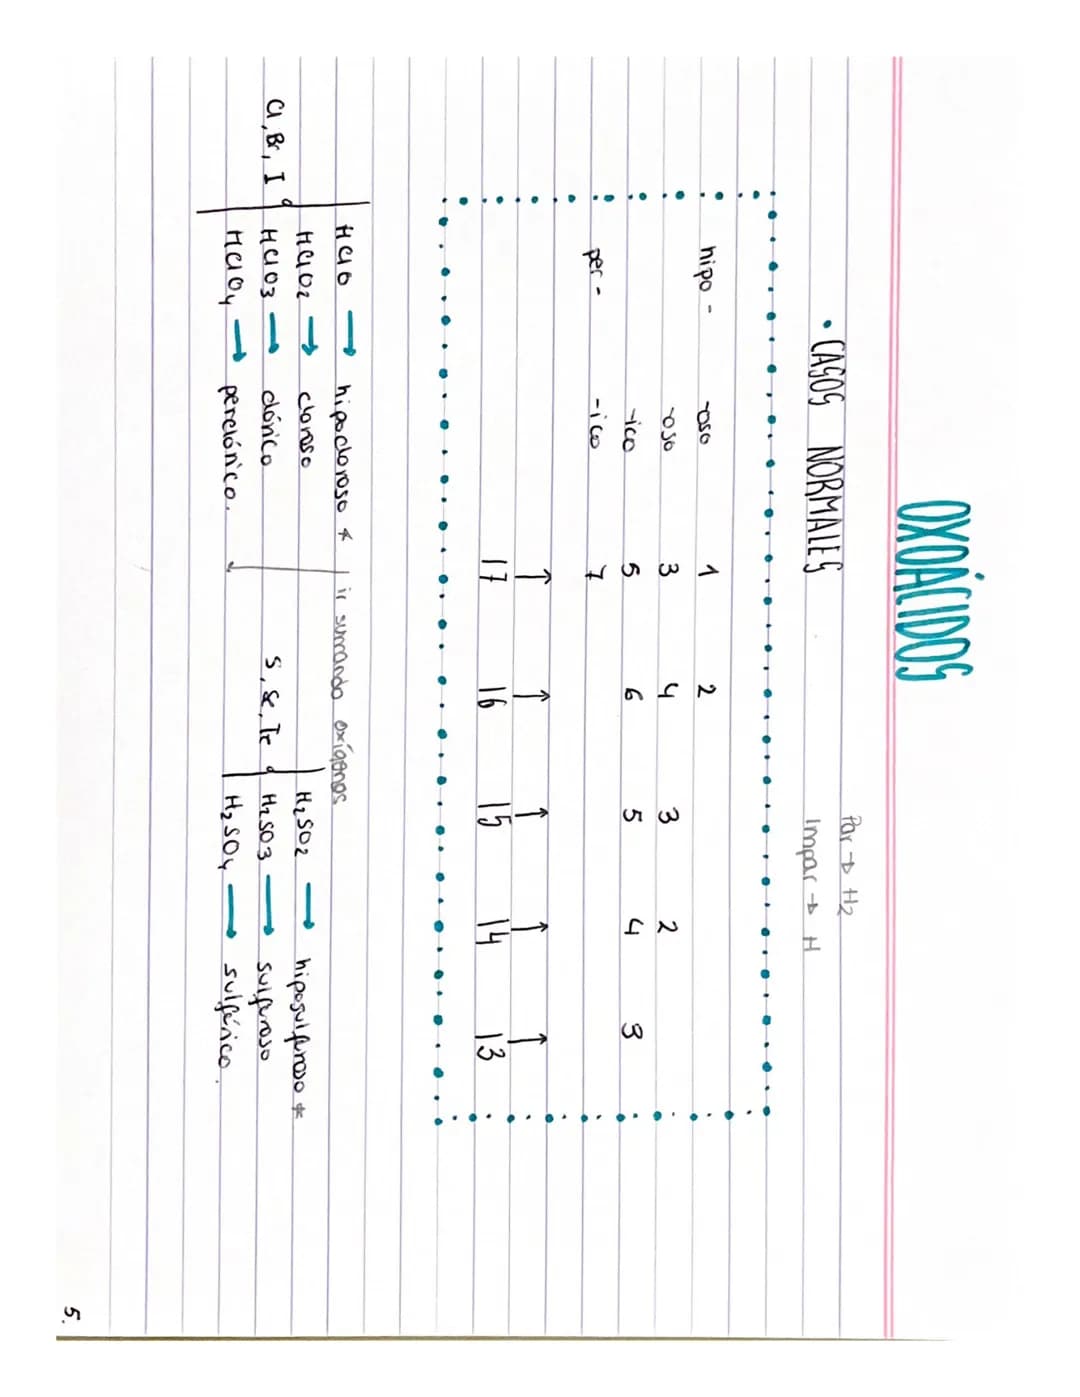 OXOÁCIDOS
• CASOS NORMALES
Par → H2
Impar → H
hipo - -oso 1 2
-oso 3 4 3 2
-ico 5 6 5 4 3
per - -ico 7
↑ ↑ ↑ ↑ ↑
17 16 15 14 13
Cl, Br, I
HClO → hipocloroso *
HClO2 → cloroso
HClO3 → clórico
HClO4 → perclórico.
ir sumando oxígenos
S, Se, Te
H2SO2 → hiposulfuroso *
H2SO3 → sulfuroso
H2SO4 → sulfúrico.
5.